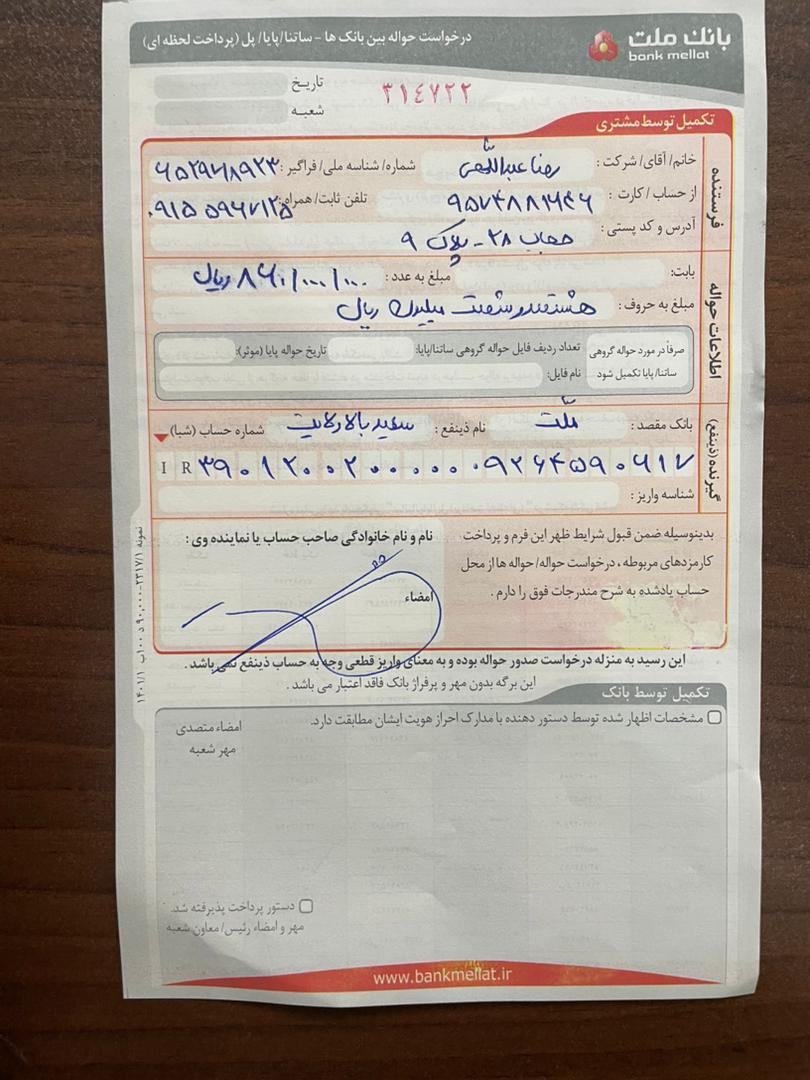 درخواست حواله بین بانک ها - ساتنا/پایا/پل (پرداخت لحظه ای)
بانک ملت
bank mellat
تاریخ
شعبه
۳۱۴۷۲۲
تکمیل توسط مشتری
فرستنده
خانم/آقای/شرکت : رضا عبداللهی شماره/شناسه ملی/فراگیر :
از حساب/کارت : تلفن ثابت/همراه: ۰۹۱۵۵۹۶۷۱۲۵
آدرس و کد پستی : حجاب ۲۸ - پلاک ۹
اطلاعات حواله
بابت: مبلغ به عدد : ۸۶۰/۰۰۰/۰۰۰ ریال
مبلغ به حروف : هشتصد و شصت میلیون ریال
صرفاً در مورد حواله گروهی ساتنا/پایا تکمیل شود
تعداد ردیف فایل حواله گروهی ساتنا/پایا: تاریخ حواله پایا (موثر):
نام فایل:
گیرنده (ذینفع)
بانک مقصد : ملت نام ذینفع : سعید بالا ولایت شماره حساب (شبا)
IR ۳۹۰۱۲۰۰۲۰۰۰۰۰۰۹۲۶۴۵۹۰۶۱۷
شناسه واریز :
بدینوسیله ضمن قبول شرایط ظهر این فرم و پرداخت
کارمزدهای مربوطه ، درخواست حواله/حواله ها از محل
حساب یادشده به شرح مندرجات فوق را دارم .
نام و نام خانوادگی صاحب حساب یا نماینده وی :
امضاء
این رسید به منزله درخواست صدور حواله بوده و به معنای واریز قطعی وجه به حساب ذینفع نمی باشد .
این برگه بدون مهر و پرفراژ بانک فاقد اعتبار می باشد .
تکمیل توسط بانک
مشخصات اظهار شده توسط دستور دهنده با مدارک احراز هویت ایشان مطابقت دارد.
امضاء متصدی
مهر شعبه
دستور پرداخت پذیرفته شد.
مهر و امضاء رئیس/معاون شعبه
www.bankmellat.ir
نمونه ۲۳۱۷/۱-۹۰،۰۰۰ د ۱۰۰ب ۱۴۰۱/۱